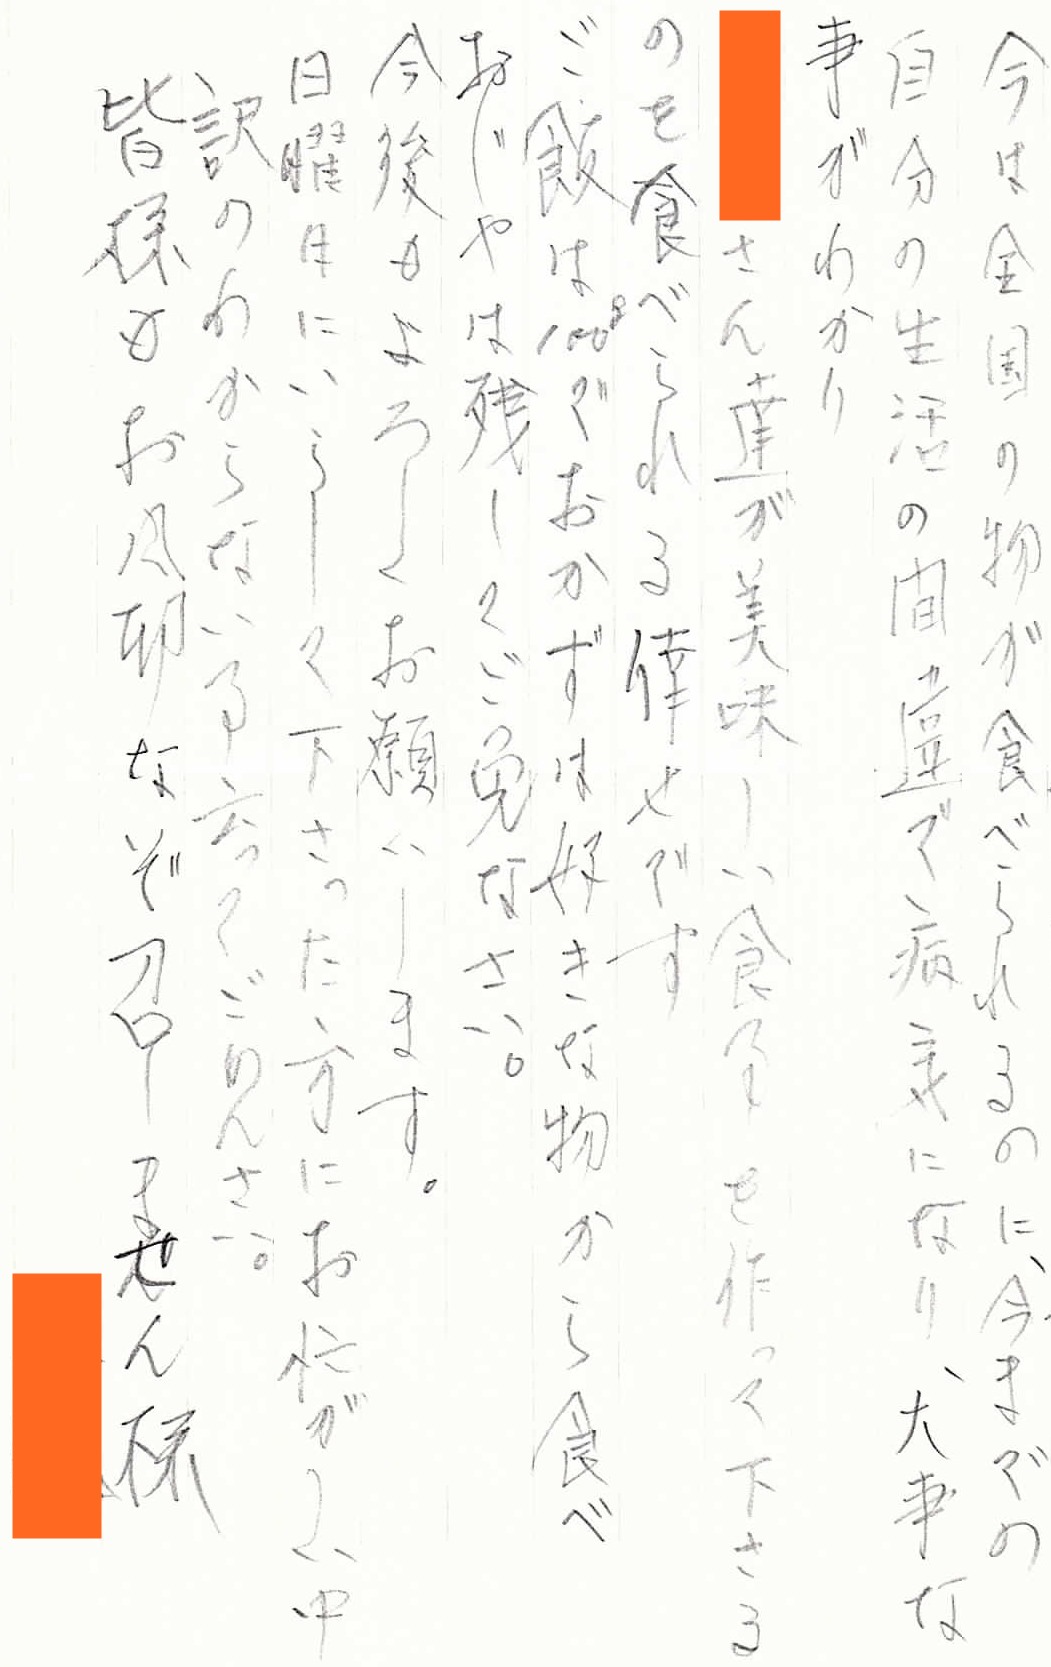 今は全国の物が食べられるのに、今までの
自分の生活の間違で病気になり、大事な
事がわかり
さん達が美味しい食事を作って下さる
のを食べられる倖せです
ご飯は100gでおかずは好きな物から食べ
おじやは残してご免なさい。
今後もよろしくお願いします。
日曜日にいらして下さった方にお忙がしい中
訳のわからない事言ってごめんさい。
皆様もお風邪など召しません様